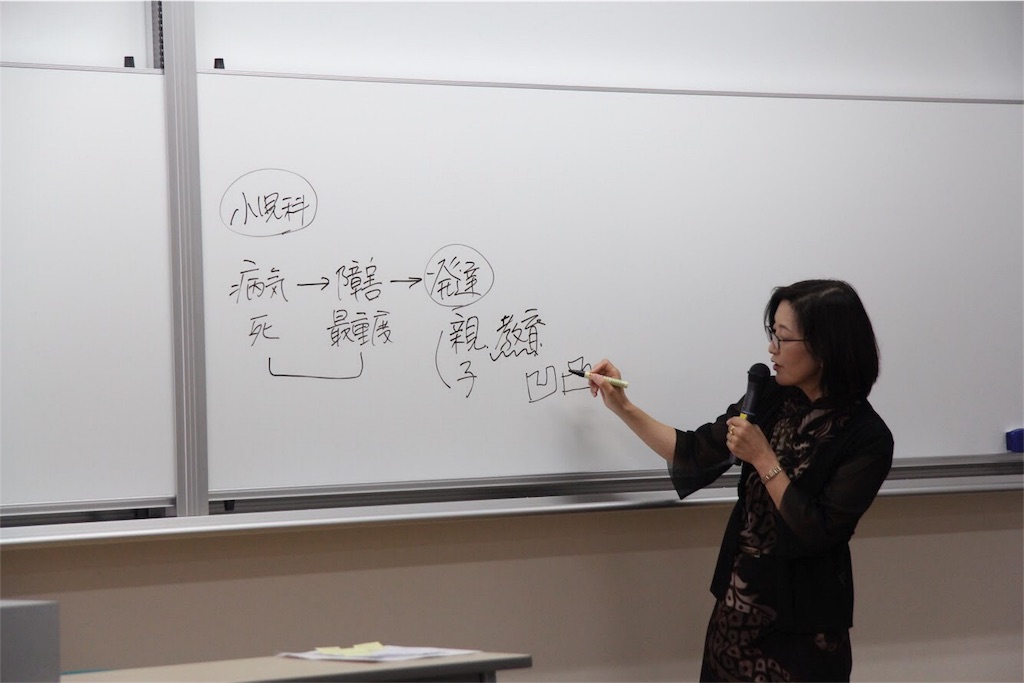 小児科
病気→障害→発達
死 最重度 親.教育
子 凹凸